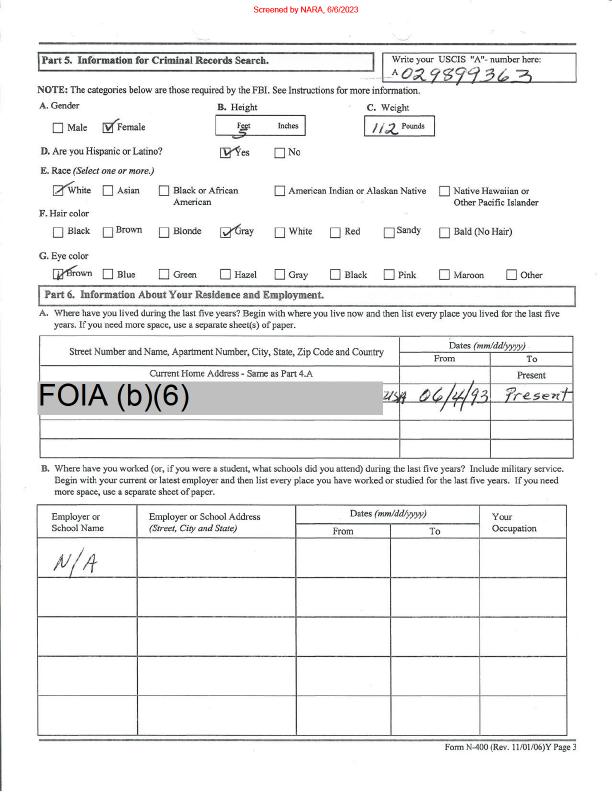 Screened by NARA, 6/6/2023
Part 5. Information for Criminal Records Search.
Write your USCIS "A"- number here:
A 029899363
NOTE: The categories below are those required by the FBI. See Instructions for more information.
A. Gender B. Height C. Weight
Male Female 5 Feet Inches 112 Pounds
D. Are you Hispanic or Latino? Yes No
E. Race (Select one or more.)
White Asian Black or African American American Indian or Alaskan Native Native Hawaiian or Other Pacific Islander
F. Hair color
Black Brown Blonde Gray White Red Sandy Bald (No Hair)
G. Eye color
Brown Blue Green Hazel Gray Black Pink Maroon Other
Part 6. Information About Your Residence and Employment.
A. Where have you lived during the last five years? Begin with where you live now and then list every place you lived for the last five
years. If you need more space, use a separate sheet(s) of paper.
Street Number and Name, Apartment Number, City, State, Zip Code and Country
Dates (mm/dd/yyyy)
From To
Current Home Address - Same as Part 4.A Present
FOIA (b)(6) USA 06/4/93 Present
B. Where have you worked (or, if you were a student, what schools did you attend) during the last five years? Include military service.
Begin with your current or latest employer and then list every place you have worked or studied for the last five years. If you need
more space, use a separate sheet of paper.
Employer or School Name
Employer or School Address (Street, City and State)
Dates (mm/dd/yyyy)
From To
Your Occupation
N/A
Form N-400 (Rev. 11/01/06)Y Page 3